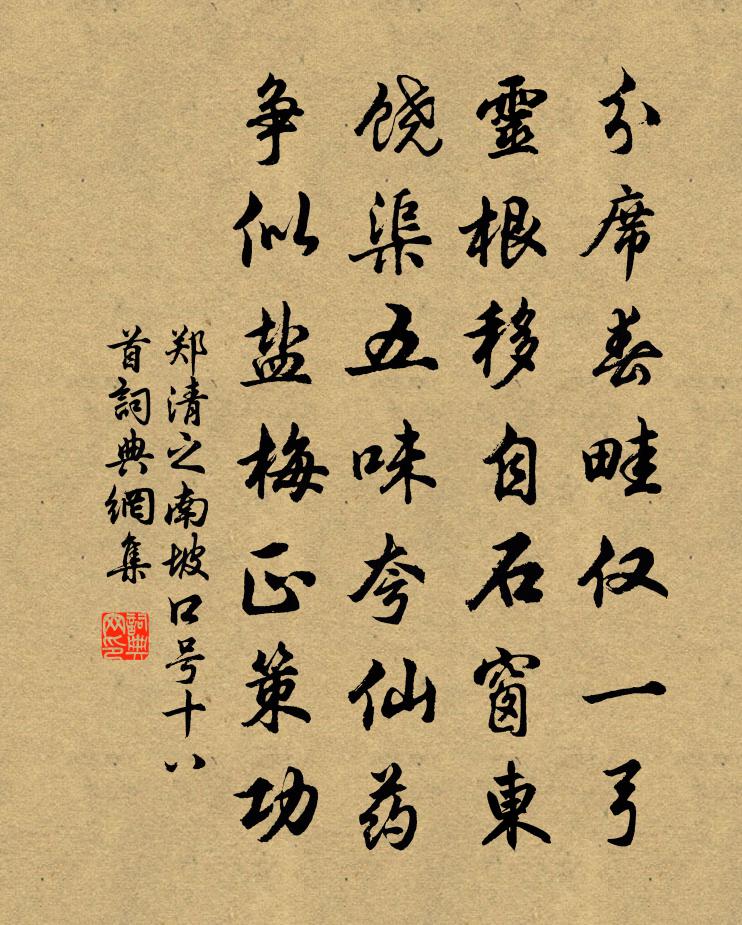 分席春畦仅一弓
靈根移自石窗東
饶渠五味夸仙药
争似盐梅正策功
郑清之南坡口号十八
首詞典網集
詞典網印